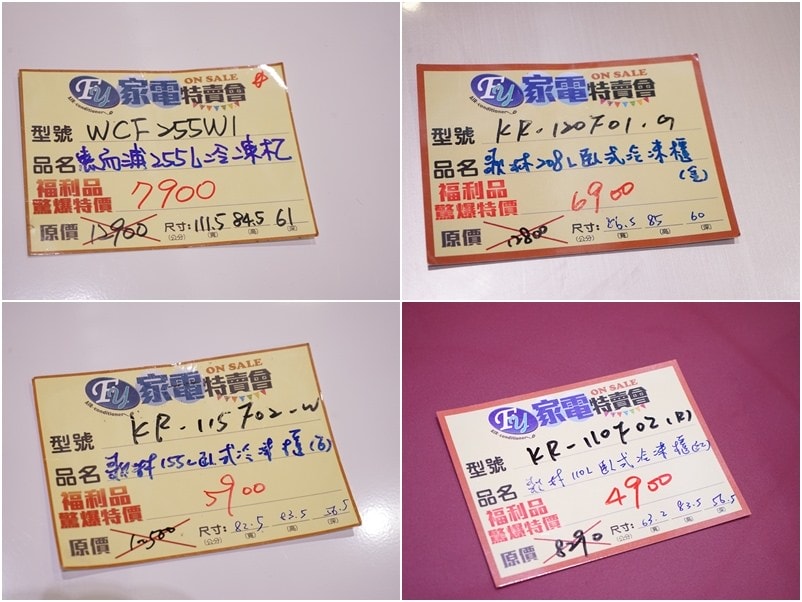 FU 家電特賣會 ON SALE
AIR conditioner
型號 WCF 255W1
品名 惠而浦255L冷凍柜
福利品
驚爆特價 7900
原價 12900 尺寸: 111.5 84.5 61
(公分) (寬) (高) (深)
FU 家電特賣會 ON SALE
AIR conditioner
型號 KR-120F01-G
品名 歌林208L臥式冷凍櫃
(金)
福利品
驚爆特價 6900
原價 12800 尺寸: 86.5 85 60
(公分) (寬) (高) (深)
FU 家電特賣會 ON SALE
AIR conditioner
型號 KR-115F02-W
品名 歌林155L臥式冷凍櫃(白)
福利品
驚爆特價 5900
原價 12500 尺寸: 82.5 83.5 56.5
(公分) (寬) (高) (深)
FU 家電特賣會 ON SALE
AIR conditioner
型號 KR-110F02(R)
品名 歌林110L臥式冷凍櫃(紅)
福利品
驚爆特價 4900
原價 8290 尺寸: 63.2 83.5 56.5
(公分) (寬) (高) (深)